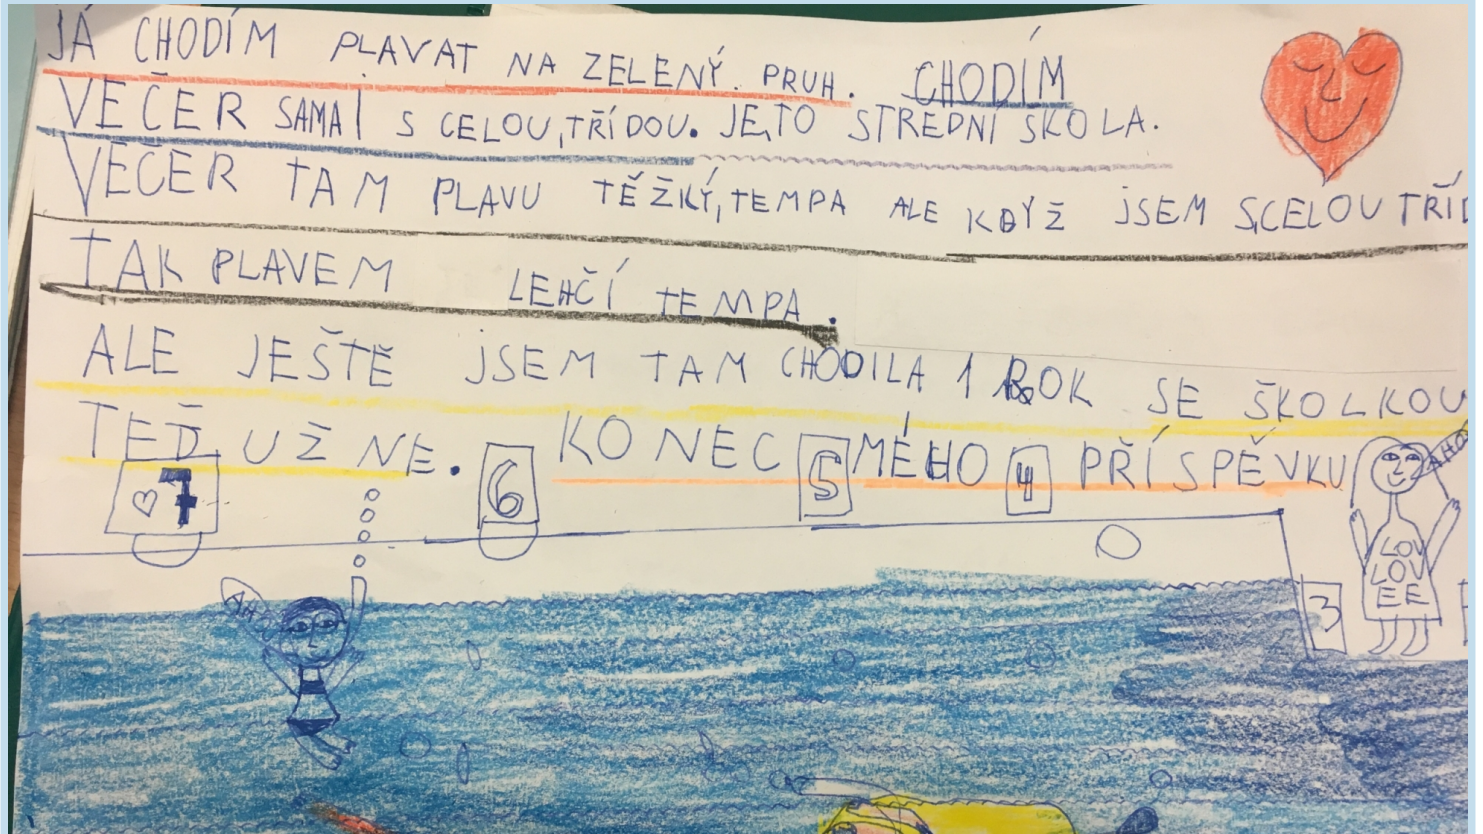 JÁ CHODÍM PLAVAT NA ZELENÝ. PRUH. CHODÍM
VEČER SAMA I S CELOU, TŘÍDOU. JE, TO STREDNÍ ŠKOLA.
VEČER TAM PLAVU TĚŽKÝ, TEMPA ALE KDYŽ JSEM S, CELOU TŘÍD
TAK PLAVEM LEHČÍ TEMPA.
ALE JEŠTĚ JSEM TAM CHODILA 1 ROK SE ŠKOLKOU
TEĎ UŽ NE. KONEC MÉHO PŘÍSPĚVKU
7 6 5 4
AHOJ
LOV
LOV
EE
3
AHOJ